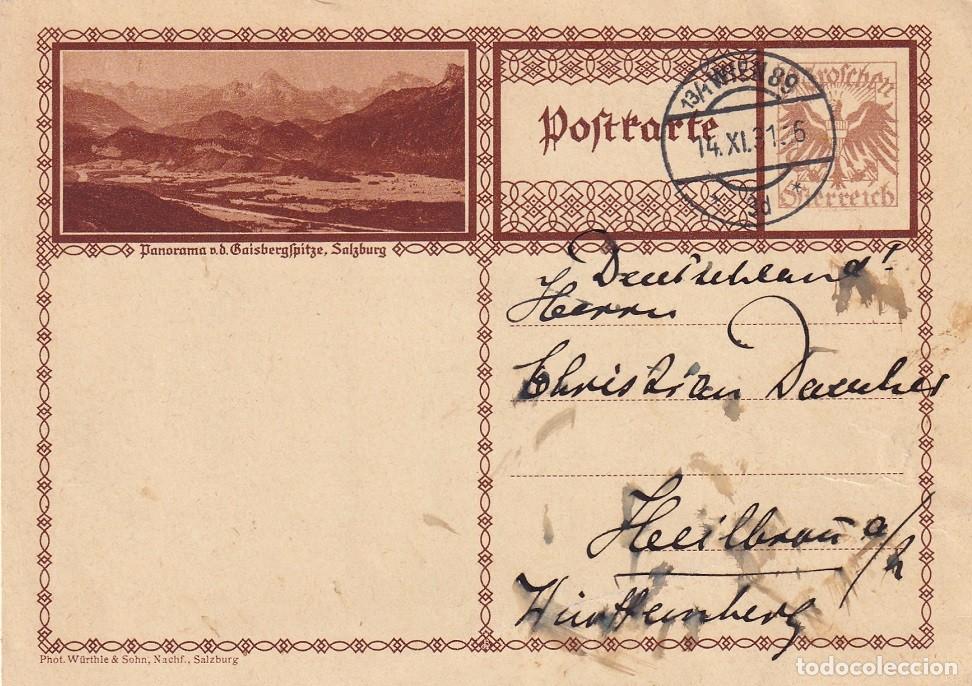 Postkarte
Groschen
Österreich
13/1 WIEN 89
14.XI.31
Panorama v.d. Gaisbergspitze, Salzburg
Deutschland!
Herrn
Christian
Heilbron̄ a/
Württemberg
Phot. Würthle & Sohn, Nachf., Salzburg
todocoleccion